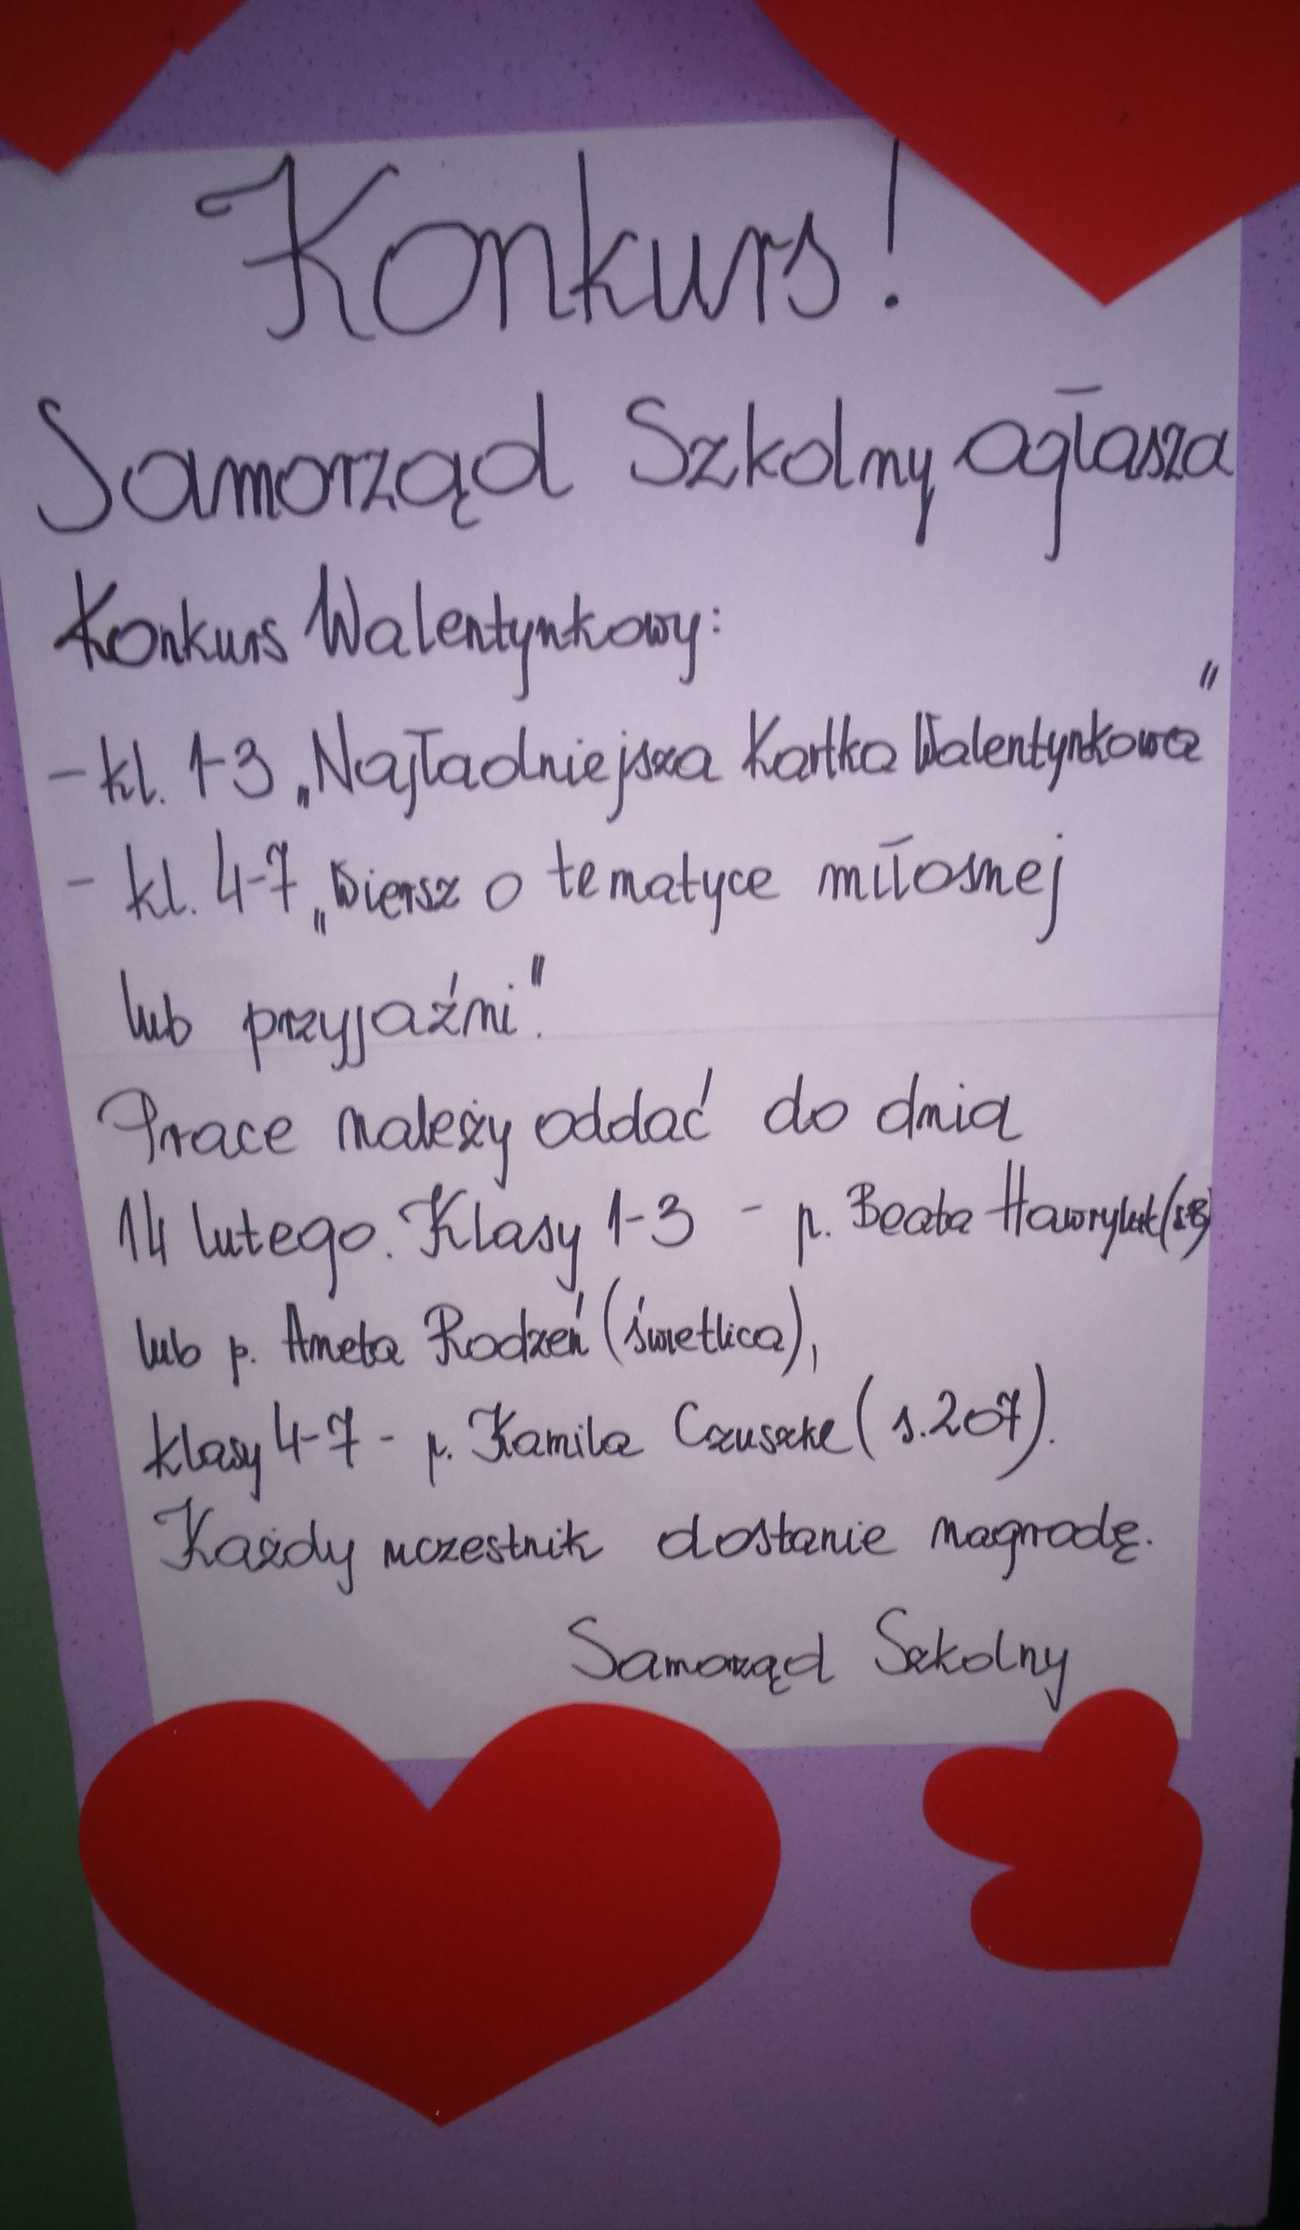 Konkurs!
Samorząd Szkolny ogłasza
Konkurs Walentynkowy:
- kl. 1-3 „Najładniejsza Kartka Walentynkowa"
- kl. 4-7 „Wiersz o tematyce miłosnej
lub przyjaźni".
Prace należy oddać do dnia
14 lutego. Klasy 1-3 - p. Beata Hawryluk
lub p. Aneta Rodzeń (świetlica),
klasy 4-7 - p. Kamila (s.207).
Każdy uczestnik dostanie nagrodę.
Samorząd Szkolny